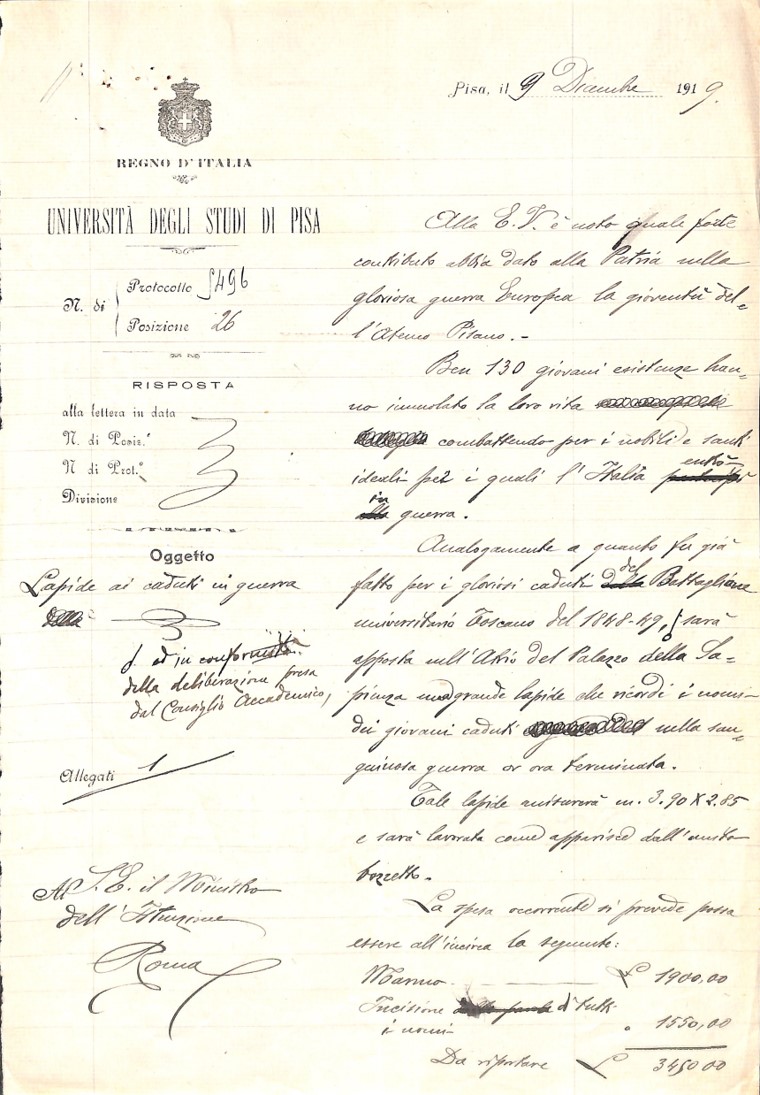 Pisa, il 9 Dicembre 1919.
REGNO D'ITALIA
UNIVERSITÀ DEGLI STUDI DI PISA
N. di
Protocollo 5496
Posizione 26
RISPOSTA
alla lettera in data
N. di Posiz.ᵉ
N. di Prot.º
Divisione
Oggetto
Lapide ai caduti in guerra
della
ed in conformità
della deliberazione presa
dal Consiglio Accademico,
Allegati 1
A S. E. il Ministro
dell'Istruzione
Roma
Alla E. V. è noto quale forte
contributo abbia dato alla Patria nella
gloriosa guerra Europea la gioventù del=
l'Ateneo Pisano.-
Ben 130 giovani esistenze han=
no immolato la loro vita
combattendo per i nobili e santi
ideali per i quali l'Italia entrò
in guerra.
Analogamente a quanto fu già
fatto per i gloriosi caduti del Battaglione
universitario Toscano del 1848-49, sarà
apposta nell'Atrio del Palazzo della Sa=
pienza una grande lapide che ricordi i nomi
dei giovani caduti nella san=
guinosa guerra or ora terminata.
Tale lapide misurerà m. 3.90 X 2.85
e sarà lavorata come apparisce dall'unito
bozzetto.
La spesa occorrente si prevede possa
essere all'incirca la seguente:
Marmo £ 1900,00
Incisione di tutti
i nomi " 1550,00
Da riportare £ 3450 00